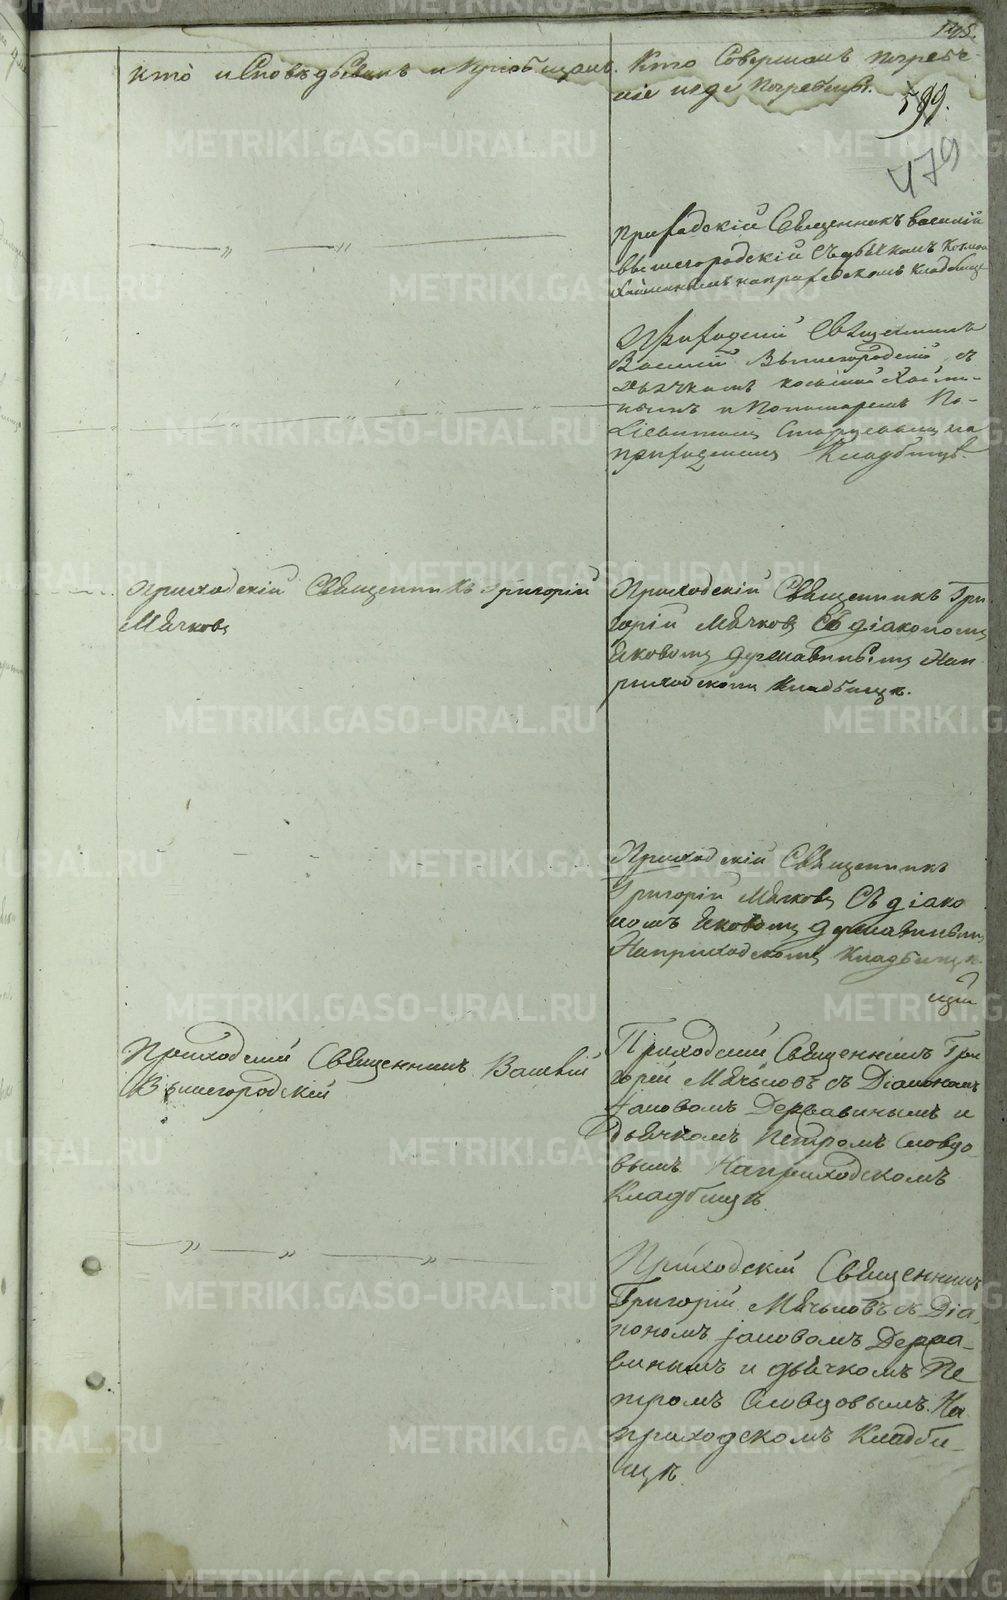 кто исповѣдывалъ и пріобщалъ.
Кто Совершалъ погребе-
ніе и где погребены.
599.
479
приходскій Священникъ василій
вышегородскій Съ дьячкомъ
на приходскомъ кладбище
Приходскій Священникъ
Василій Вышегородскій съ
дьячкомъ
и Пономаремъ
на
приходскомъ Кладбищѣ.
Приходскій Священникъ Григорій
Мячковъ
Приходскій Священникъ Гри-
горій Мячковъ Съ діакономъ
Яковомъ Державинымъ На п
риходскомъ Кладбищѣ.
Приходскій Священникъ
Григорій Мячковъ Съ діако
номъ Яковомъ Державинымъ
На приходскомъ Кладбищѣ
Приходскій Священникъ Василій
Вышегородскій
Приходскій Священникъ Гри
горій Мячьковъ съ Діакономъ
Іаковомъ Державинымъ и
дьячкомъ Петромъ Словцо-
вымъ На приходскомъ
Кладбищѣ
Приходскій Священникъ
Григорій Мячьковъ съ Діа-
кономъ Іаковомъ Держа-
винымъ и дьячкомъ Пе
тромъ Словцовымъ. На
приходскомъ Кладби-
щѣ
METRIKI.GASO-URAL.RU